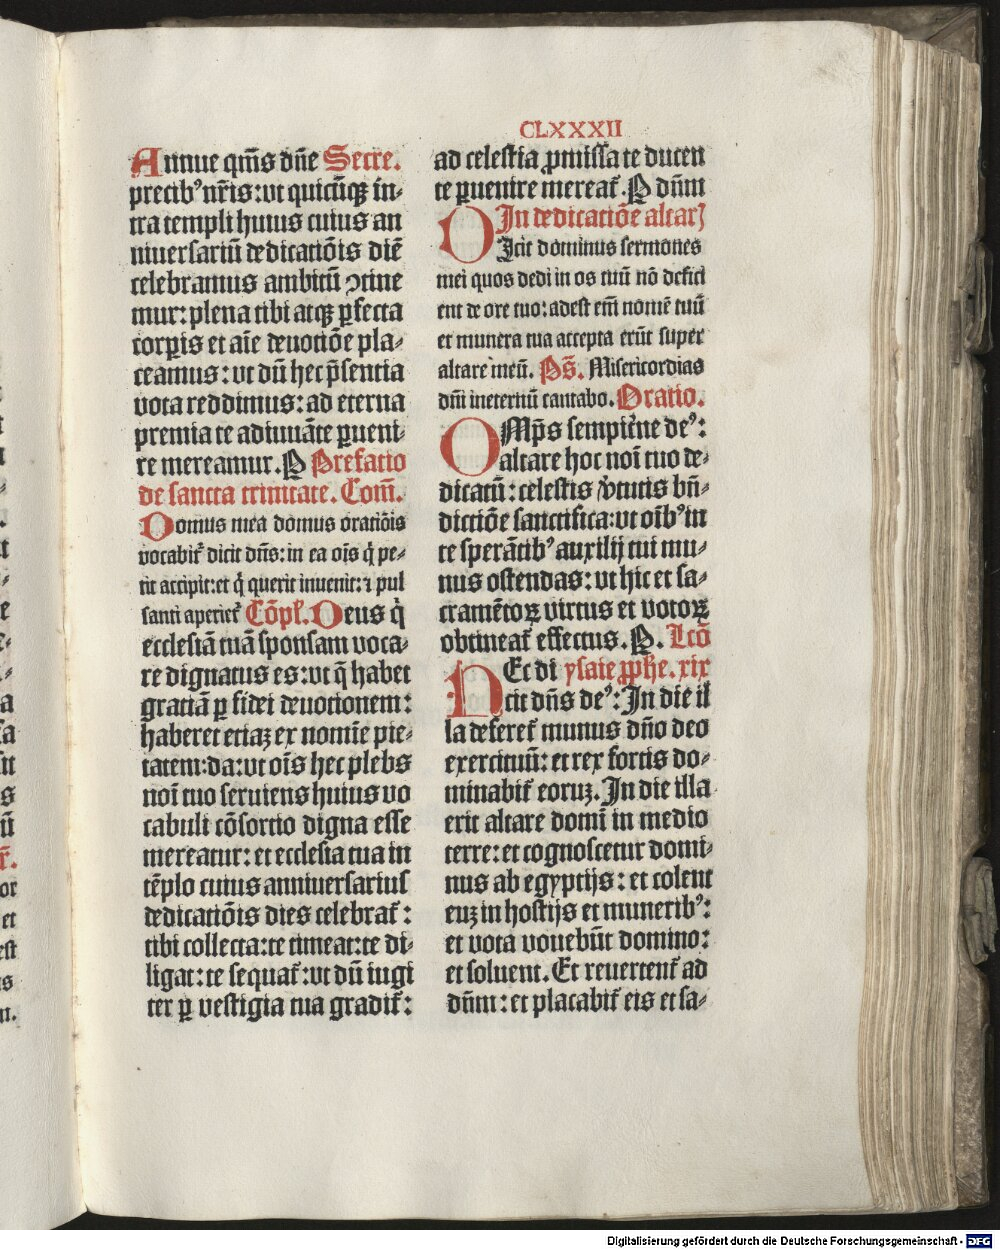 CLXXXII
Annue qm̄s dn̄e Secre.
precibꝰ nr̄is: vt quicūqꝫ in-
tra templi huius cuius an
niuersariū dedicatiōis diē
celebramus ambitū ꝯtine
mur: plena tibi atqꝫ ꝑfecta
corꝑis et aīe deuotiōe pla-
ceamus: vt dū hec p̄sentia
vota reddimus: ad eterna
premia te adiuuāte ꝑueni-
re mereamur. P Prefatio
de sancta trinitate. Com̄.
Domus mea domus oratiōis
vocabit᷑ dicit dn̄s: in ea oīs q̇ pe-
tit accipit: et q̇ querit inuenit: ⁊ pul
santi aperiet᷑ Cōpl᷑. Deus q̇
ecclesiā tuā sponsam voca-
re dignatus es: vt q̄ habet
gratiā ꝑ fidei deuotionem:
haberet etiaꝫ ex nomīe pie-
tatem: da: vt oīs hec plebs
noī tuo seruiens huius vo
cabuli cōsortio digna esse
mereatur: et ecclesia tua in
tēplo cuius anniuersarius
dedicatiōis dies celebrat᷑:
tibi collecta: te timeat: te di-
ligat: te sequat᷑: vt dū iugi
ter ꝑ vestigia tua gradit᷑:
ad celestia ꝓmissa te ducen
te ꝑuenire mereat᷑. P dn̄m
In dedicatiōe altarꝭ
DIcit dominus sermones
mei quos dedi in os tuū nō defici
ent de ore tuo: adest em̄ nomē tuū
et munera tua accepta erūt super
altare meū. Ps̄. Misericordias
dn̄i ineternū cantabo. Oratio.
OMp̄s sempit̄ne deꝰ:
altare hoc noī tuo de-
dicatū: celestis v̓tutis bn̄-
dictiōe sanctifica: vt oībꝰ in
te sperātibꝰ auxilij tui mu-
nus ostendas: vt hic et sa-
cramētoꝝ virtus et votoꝝ
obtineat᷑ effectus. P. Lcō
Et di ysaie ꝓph̄e. xix
DIcit dn̄s deꝰ: In die il
la deferet᷑ munus dn̄o deo
exercituū: et rex fortis do-
minabit᷑ eoruꝫ. In die illa
erit altare domī in medio
terre: et cognoscetur domi-
nus ab egyptijs: et colent
euꝫ in hostijs et muneribꝰ:
et vota vouebūt domino:
et soluent. Et reuertent᷑ ad
dn̄m: et placabit᷑ eis et sa-
Digitalisierung gefördert durch die Deutsche Forschungsgemeinschaft - DFG